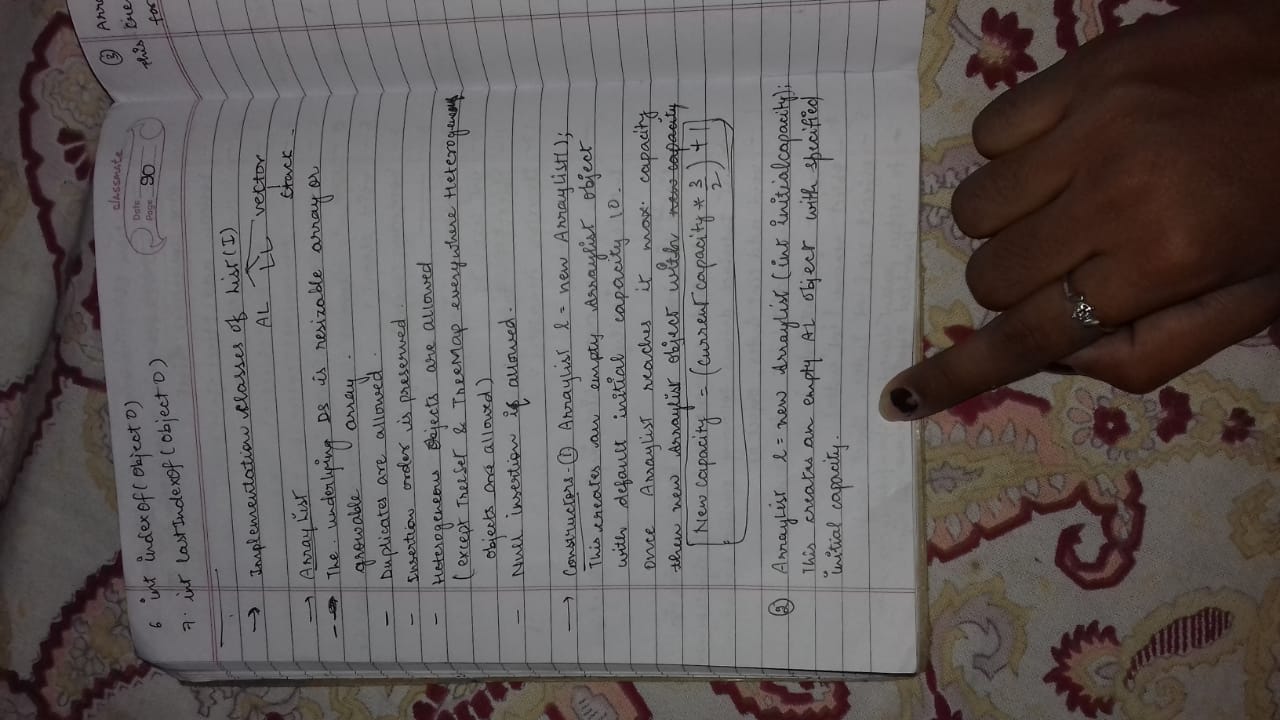 classmate
Date
Page 90
6 int indexOf(Object O)
7. int lastIndexOf(Object O)
→ Implementation classes of List(I)
AL LL vector
stack
→ ArrayList
The underlying DS is resizable array or
growable array.
- Duplicates are allowed.
- Insertion order is preserved.
- Heterogeneous objects are allowed
(except TreeSet & TreeMap everywhere Heterogeneous
objects are allowed)
- Null insertion is allowed.
→ Constructors - ① ArrayList l = new ArrayList();
This creates an empty ArrayList object
with default initial capacity 10.
Once ArrayList reaches it max. capacity
then new ArrayList object with new capacity
New Capacity = (current capacity * 3/2) + 1
② ArrayList l = new ArrayList (int initialcapacity);
This creates an empty AL object with specified
initial capacity.
③ Arra
this cre
for